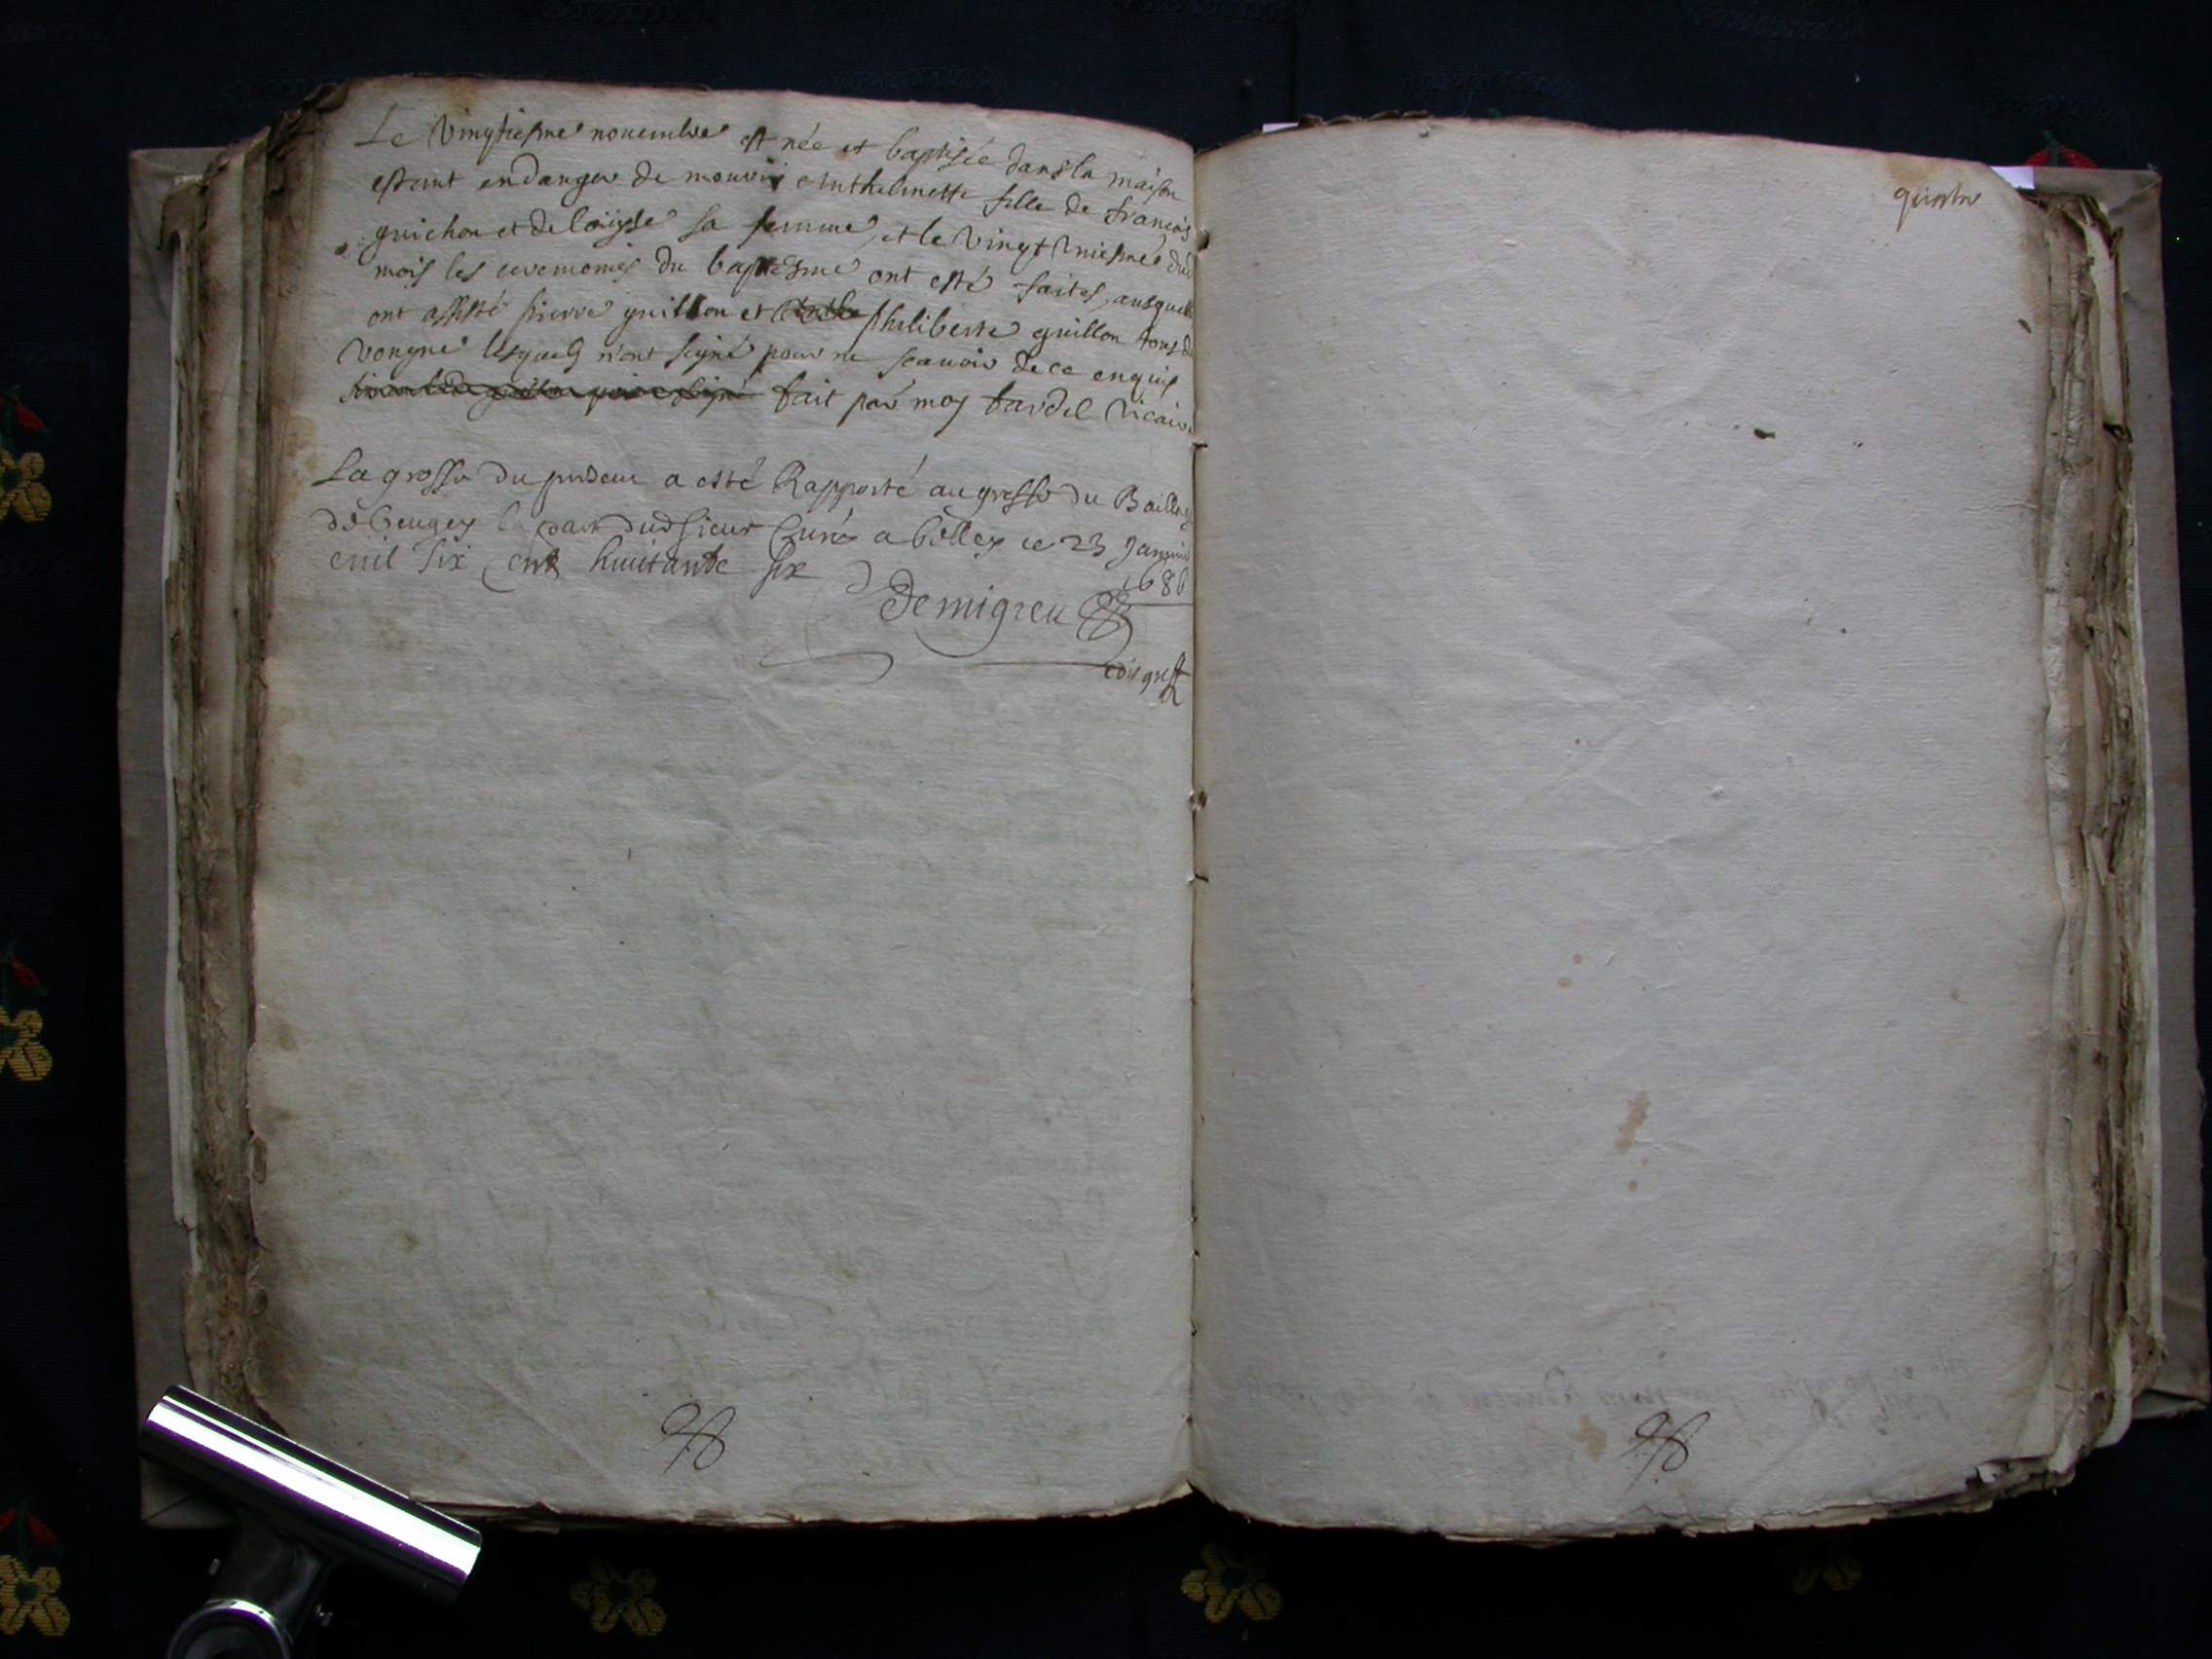 Le vingtiesme nouembre est née et baptisée dans la maison
estant en danger de mourir Anthelmette fille de françois
guichon et de loüyse sa femme, et le vingt uniesme dud
mois les ceremonies du baptesme ont esté faites, ausquell
ont assisté pierre guillon et philiberte guillon tous de
vongne lesquels n'ont signé pour ne scauoir de ce enquis
fait par moy tardel vicaire
La grosse du a esté Rapporté au greffe du Baillage
de beugey par dudsieur Curé a belley ce 23 Januier
mil six cent huitante six 1686
Demigieu
greff